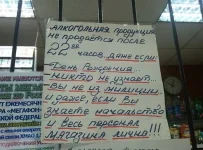 АЛКОГОЛЬНАЯ ПРОДУКЦИЯ
НЕ ПРОДАЕТСЯ ПОСЛЕ
22 00 ЧАСОВ, ДАЖЕ ЕСЛИ:
ДЕНЬ РОЖДЕНИЯ...
НИКТО НЕ УЗНАЕТ...
ВЫ НЕ ИЗ МИЛИЦИИ...
ДАЖЕ, ЕСЛИ ВЫ
ЗНАЕТЕ НАЧАЛЬСТВО
И ВЕСЬ ПЕРСОНАЛ
МАГАЗИНА ЛИЧНО!!!